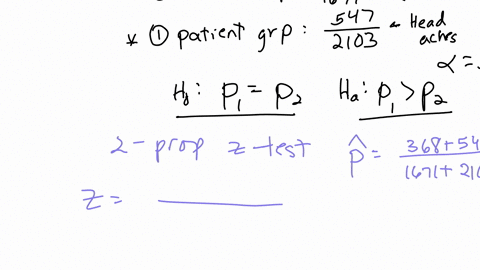 1671
* ① patient grp: 547/2103 ← Head aches
α = .
H₀: P₁ = P₂ Hₐ: P₁ > P₂
2-prop z-test p̂ = 368+54/1671+210
Z =